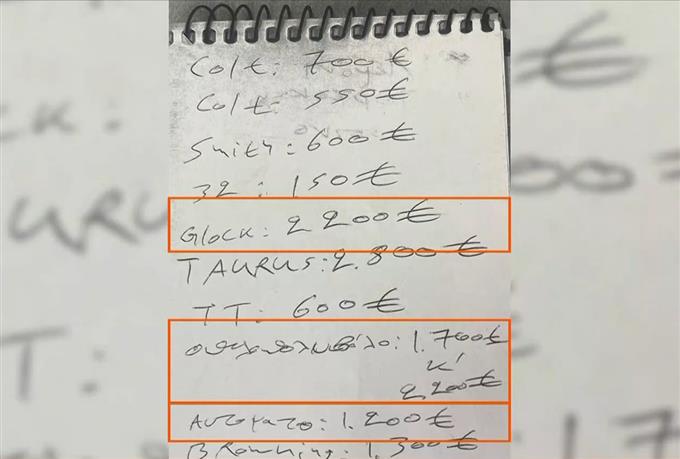 Colt: 700 €
Colt: 550€
Smith: 600€
32: 150€
Glock: 2200€
TAURUS: 2.800€
TT: 600€
οπλοπολυβόλο: 1.700€
κ'
2.200€
Αυτοματο: 1.200€
BROWNING: 1.300€